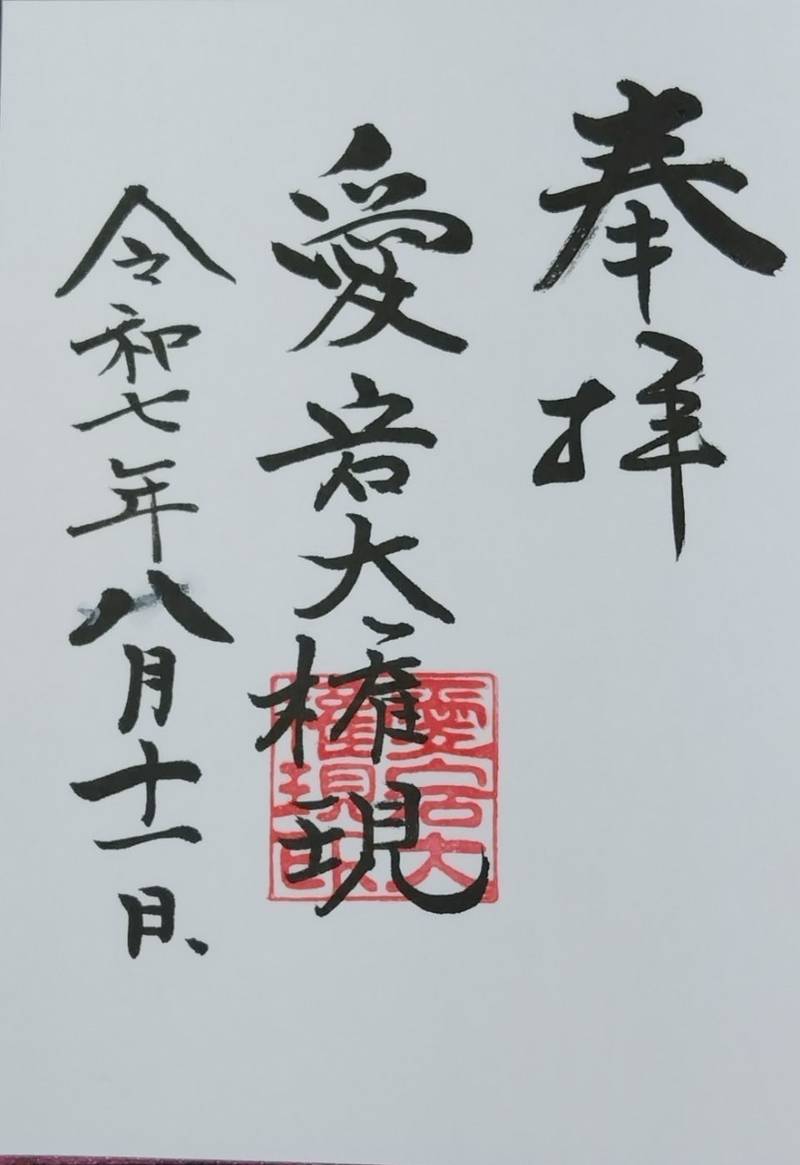 奉拝
愛宕大権現
令和七年八月十一日
愛宕大
權現印